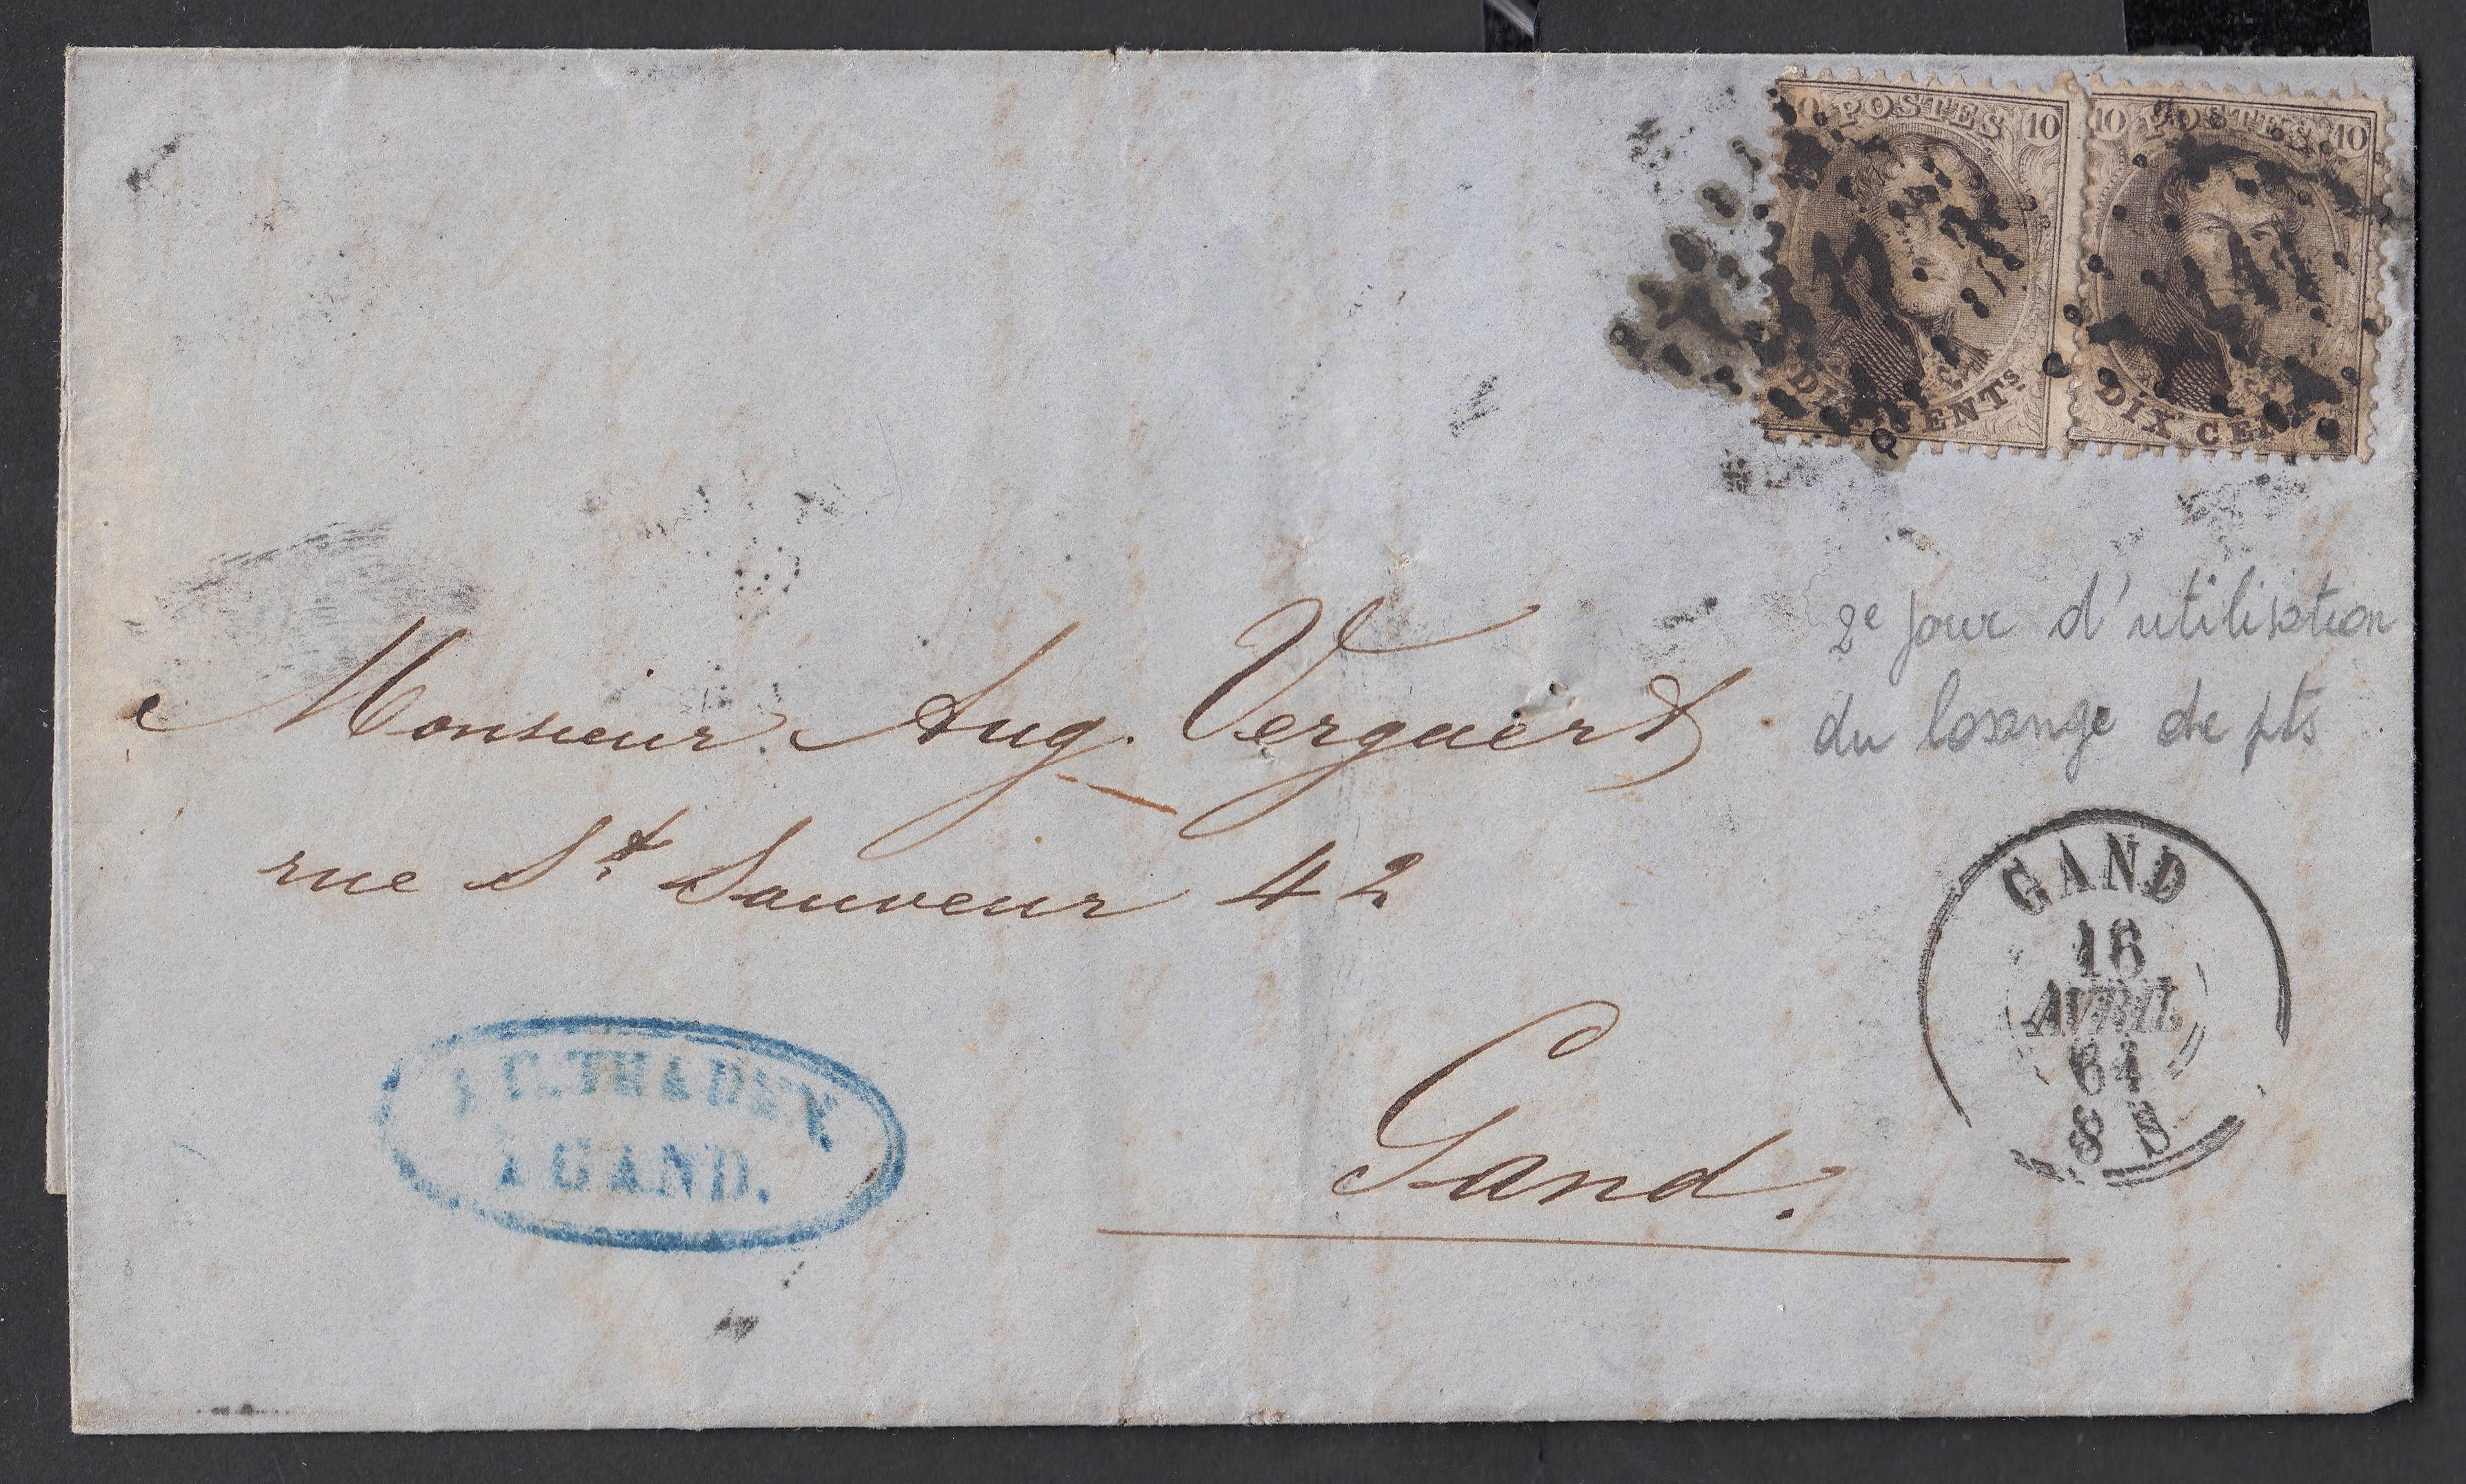 10 POSTES 10
DIX CENTS
10 POSTES 10
DIX CENT
2e jour d'utilisation
du losange de pts
Monsieur Aug. Vergaert
rue St Sauveur 42
Gand.
GAND
16
AVRIL
64
8 S
GAND.